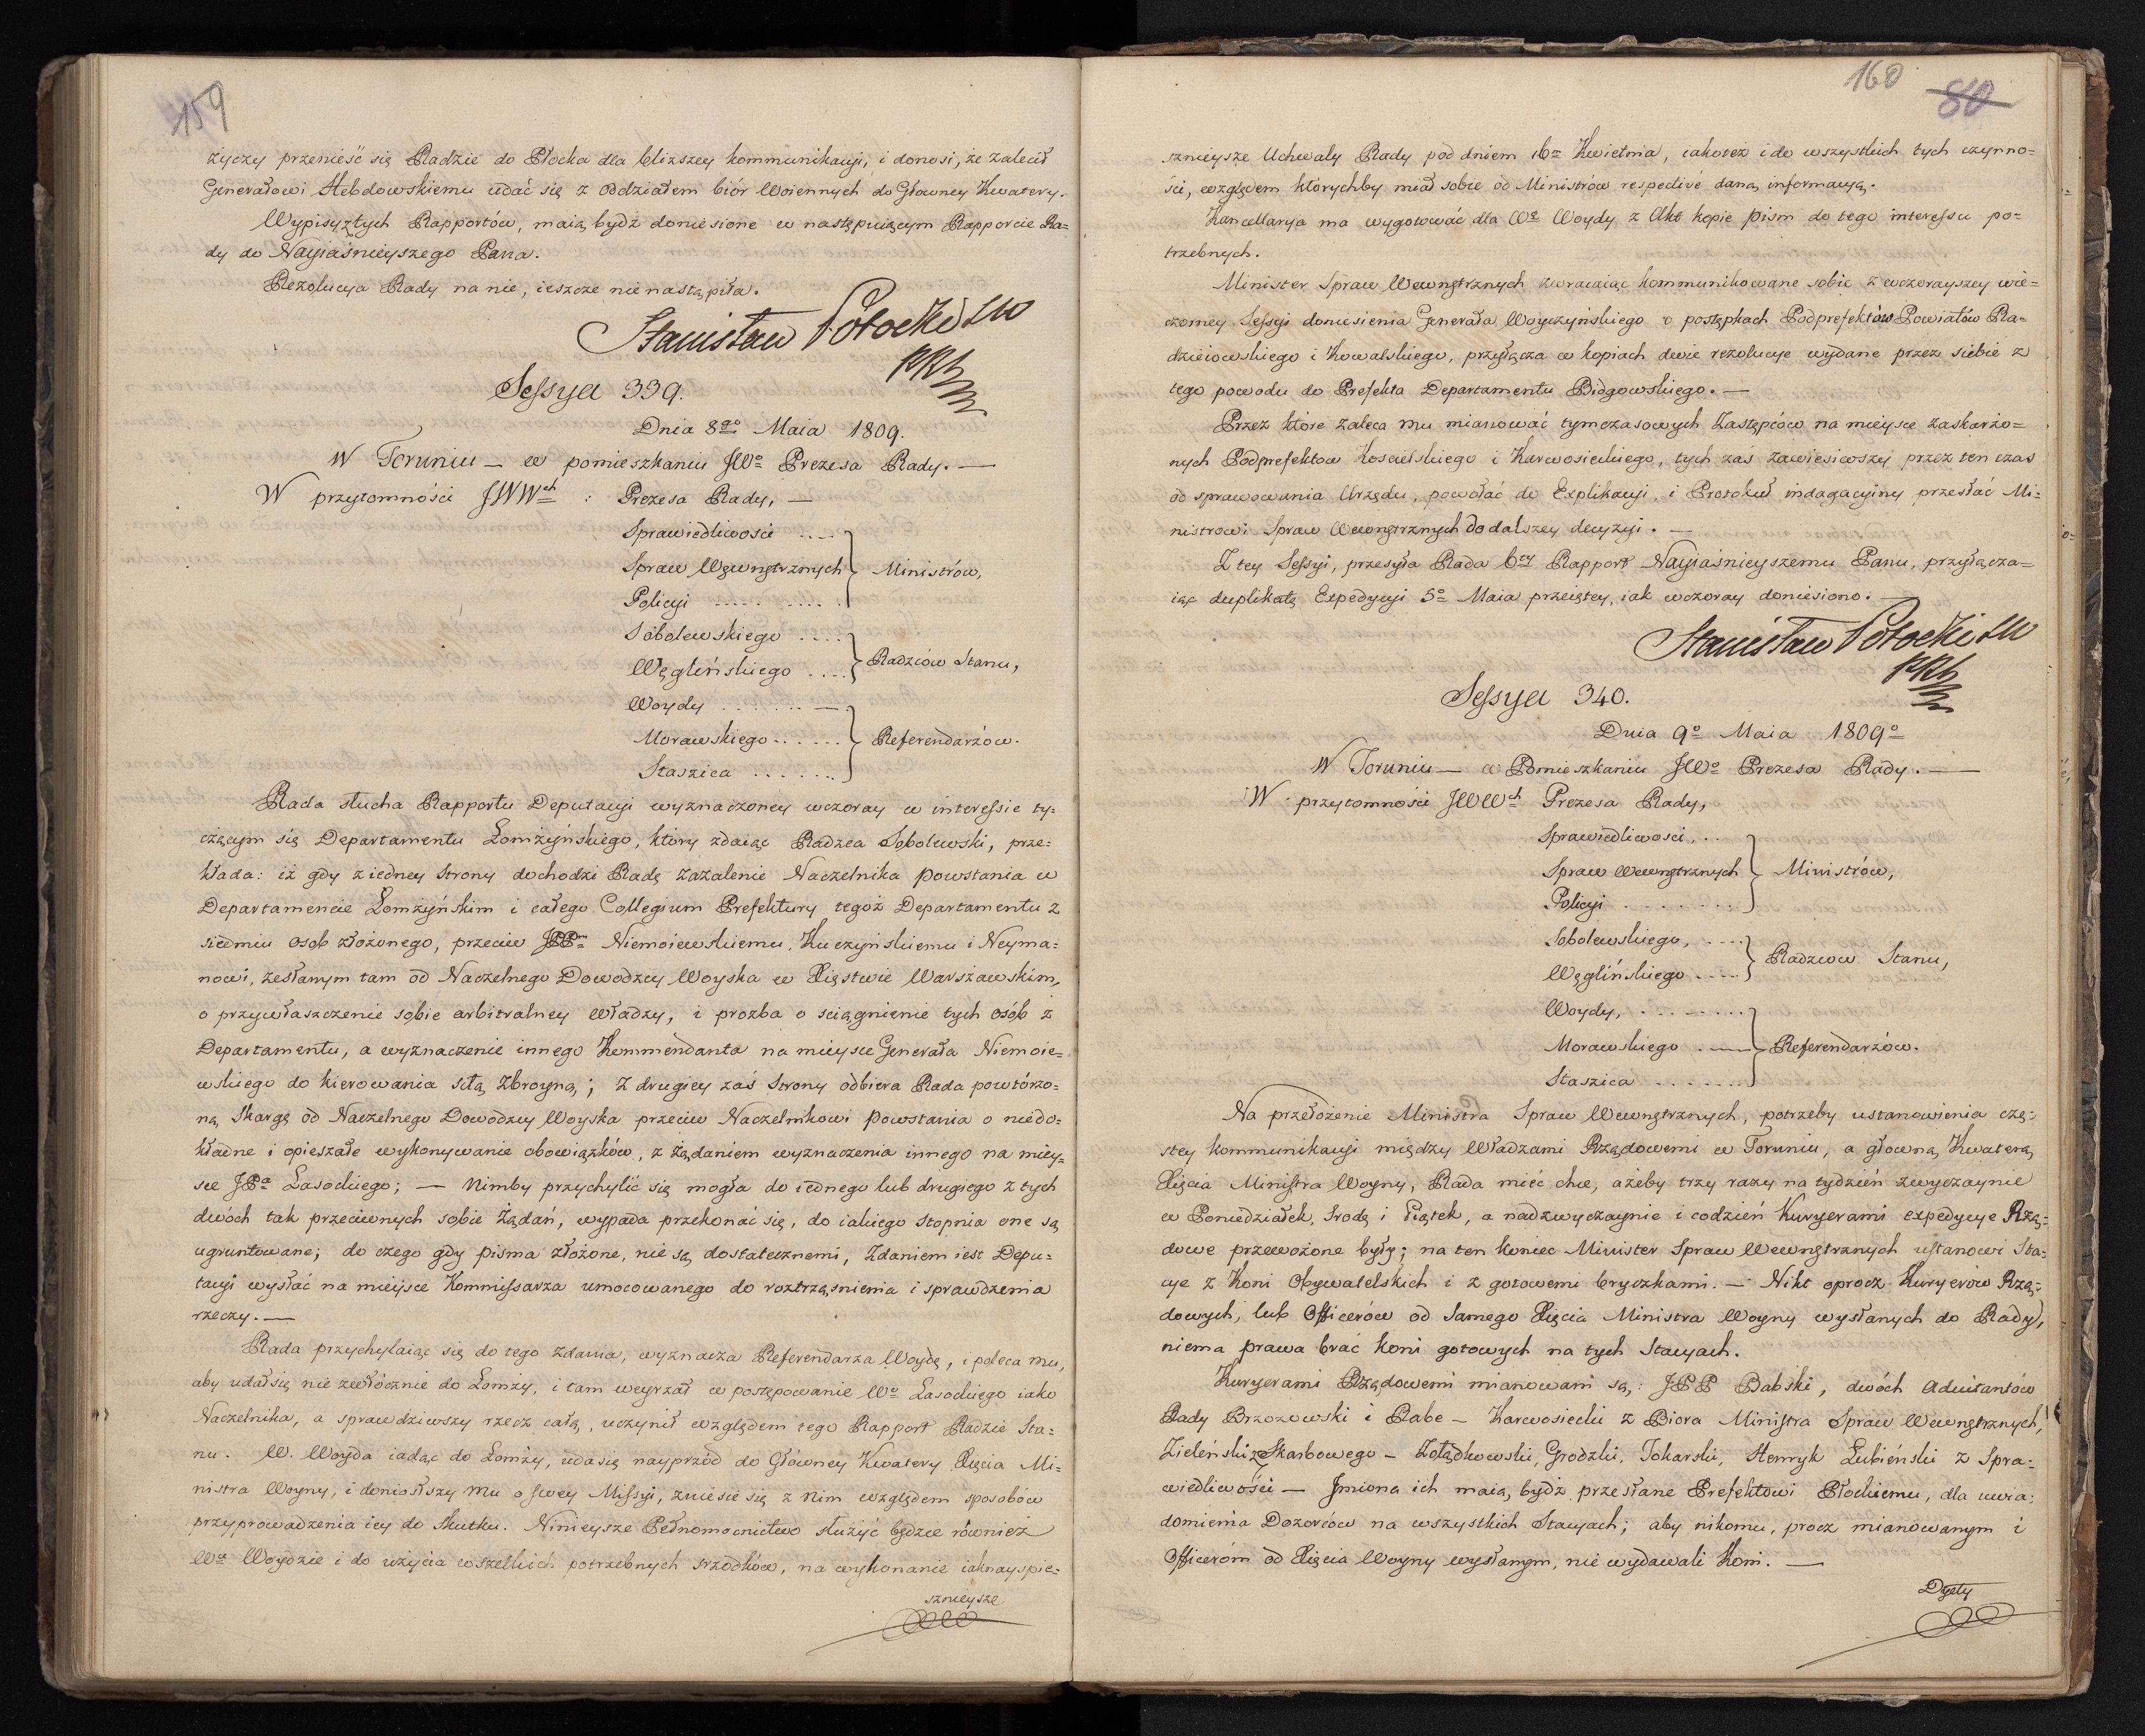 159
życzy przenieść się Radzie do Płocka dla bliższey kommunikacyi, i donosi, że zalecił
Generałowi Hebdowskiemu udać się z oddziałem biór Woiennych do Głowney Kwatery.
Wypisy z tych Rapportów, maią bydź doniesione w następuiącym Rapporcie Ra=
dy do Nayiaśnieyszego Pana.
Rezolucya Rady na nie, ieszcze nie nastąpiła.
Stanisław Potocki
Sessya 339.
Dnia 8go Maia 1809.
W Toruniu — w pomieszkaniu JWo Prezesa Rady. —
W przytomności JWWch : Prezesa Rady, —
Sprawiedliwości ....
Spraw Wewnętrznych } Ministrów,
Policyi ..........
Sobolewskiego ....
Węglińskiego .... } Radzców Stanu,
Woydy ....... —
Morawskiego ...... } Referendarzów.
Staszica .......
Rada słucha Rapportu Deputacyi wyznaczoney wczoray w interessie ty=
czącym się Departamentu Łomżyńskiego, który zdaiąc Radzca Sobolewski, prze=
kłada: iż gdy z iedney strony dochodzi Radę zażalenie Naczelnika powstania w
Departamencie Łomżyńskim i całego Collegium Prefektury tegoż Departamentu z
siedmiu osob złożonego, przeciw JPPm Niemoiewskiemu, Kuczyńskiemu i Neyma=
nowi, zesłanym tam od Naczelnego Dowodzcy Woyska w Xięstwie Warszawskim,
o przywłaszczenie sobie arbitralney władzy, i prozba o sciągnienie tych osób z
Departamentu, a wyznaczenie innego Kommendanta na mieysce Generała Niemoie=
wskiego do kierowania siłą zbroyną; z drugiey zaś strony odbiera Rada powtórzo=
ną Skargę od Naczelnego Dowodzcy Woyska przeciw Naczelnikowi powstania o niedo=
kładne i opieszałe wykonywanie obowiązków, z żądaniem wyznaczenia innego na miey=
sce JPa Lasockiego; — Nimby przychylić się mogła do iednego lub drugiego z tych
dwóch tak przeciwnych sobie żądań, wypada przekonać się, do iakiego stopnia one są
ugruntowane; do czego gdy pisma złożone, nie są dostatecznemi, Zdaniem iest Depu=
tacyi wysłać na mieysce Kommissarza umocowanego do roztrząśnienia i sprawdzenia
rzeczy. —
Rada przychylaiąc się do tego zdania, wyznacza Referendarza Woydę, i poleca mu,
aby udał się nie zwłócznie do Łomży, i tam weyrzał w postępowanie Wo Lasockiego iako
Naczelnika, a sprawdziwszy rzecz całą, uczynił względem tego Rapport Radzie Sta=
nu. W. Woyda iadąc do Łomży, uda się nayprzód do Główney Kwatery Xięcia Mi=
nistra Woyny, i doniosłszy mu o swey Missyi, zniesie się z nim względem sposobów
przyprowadzenia iey do skutku. Ninieysze Pełnomocnictwo służyć będzie również
Wu Woydzie i do użycia wszelkich potrzebnych srzodków, na wykonanie iaknayspie=
sznieysze
160
80
sznieysze Uchwały Rady pod dniem 16m Kwietnia, iakoteż i do wszystkich tych czynno=
ści, względem którychby miał sobie od Ministrów respective daną informacyą.
Kancellarya ma wygotować dla Wo Woydy z Akt kopie pism do tego interessu po=
trzebnych.
Minister Spraw Wewnętrznych zwracaiąc kommunikowane sobie z wczorayszey wie=
czorney Sessyi doniesienia Generała Woyczyńskiego o postępkach Podprefektów Powiatów Ra=
dzieiowskiego i Kowalskiego, przyłącza w kopiach dwie rezolucye wydane przez siebie z
tego powodu do Prefekta Departamentu Bidgowskiego. —
Przez które zaleca mu mianować tymczasowych Zastępców na mieysce zaskarżo=
nych Podprefektow Kosielskiego i Karwosieckiego, tych zas zawiesiwszy przez ten czas
od sprawowania Urzędu, powołać do Explikacyi, i Protokuł indagacyiny przesłać Mi=
nistrowi Spraw Wewnętrznych do dalszey decyzyi. —
Z tey Sessyi, przesyła Rada 6ty Rapport Nayiaśnieyszemu Panu, przyłącza=
iąc duplikatę Expedycyi 5o Maia przeiętey, iak wczoray doniesiono. —
Stanisław Potocki
Sessya 340.
Dnia 9o Maia 1809o
W Toruniu — w Pomieszkaniu JWo Prezesa Rady. —
W przytomności JWWch Prezesa Rady,
Sprawiedliwości, ..
Spraw Wewnętrznych } Ministrów,
Policyi ........
Sobolewskiego, ....
Węglińskiego .... } Radzców Stanu,
Woydy, ........
Morawskiego .— } Referendarzów.
Staszica .......
Na przełożenie Ministra Spraw Wewnętrznych, potrzeby ustanowienia czę=
stey kommunikacyi między Władzami Rządowemi w Toruniu, a głowną Kwaterą
Xięcia Ministra Woyny, Rada mieć chce, ażeby trzy razy na tydzień zwyczaynie
w Poniedziałek, Srodę i Piątek, a nadzwyczaynie i codzień Kuryerami expedycye Rzą=
dowe przewożone były; na ten koniec Minister Spraw Wewnętrznych ustanowi Sta=
cye z Koni Obywatelskich i z gotowemi bryczkami. — Nikt oprocz Kuryerów Rzą=
dowych, lub Officerów od samego Xięcia Ministra Woyny wysłanych do Rady,
niema prawa brać koni gotowych na tych Stacyach.
Kuryerami Rządowemi mianowani są: JPP Babski, dwóch Adiutantów
Rady Brzozowski i Rabe — Karwosiecki z Biora Ministra Spraw Wewnętrznych,
Zieleński z Skarbowego — Żołądkowski, Grodzki, Tokarski, Henryk Łubieński z Spra=
wiedliwości — Jmiona ich maią bydź przesłane Prefektowi Płockiemu, dla uwia=
domienia Dozorców na wszystkich Stacyach; aby nikomu, procz mianowanym i
Officeróm od Xięcia Woyny wysłanym, nie wydawali Koni. —
Dyety